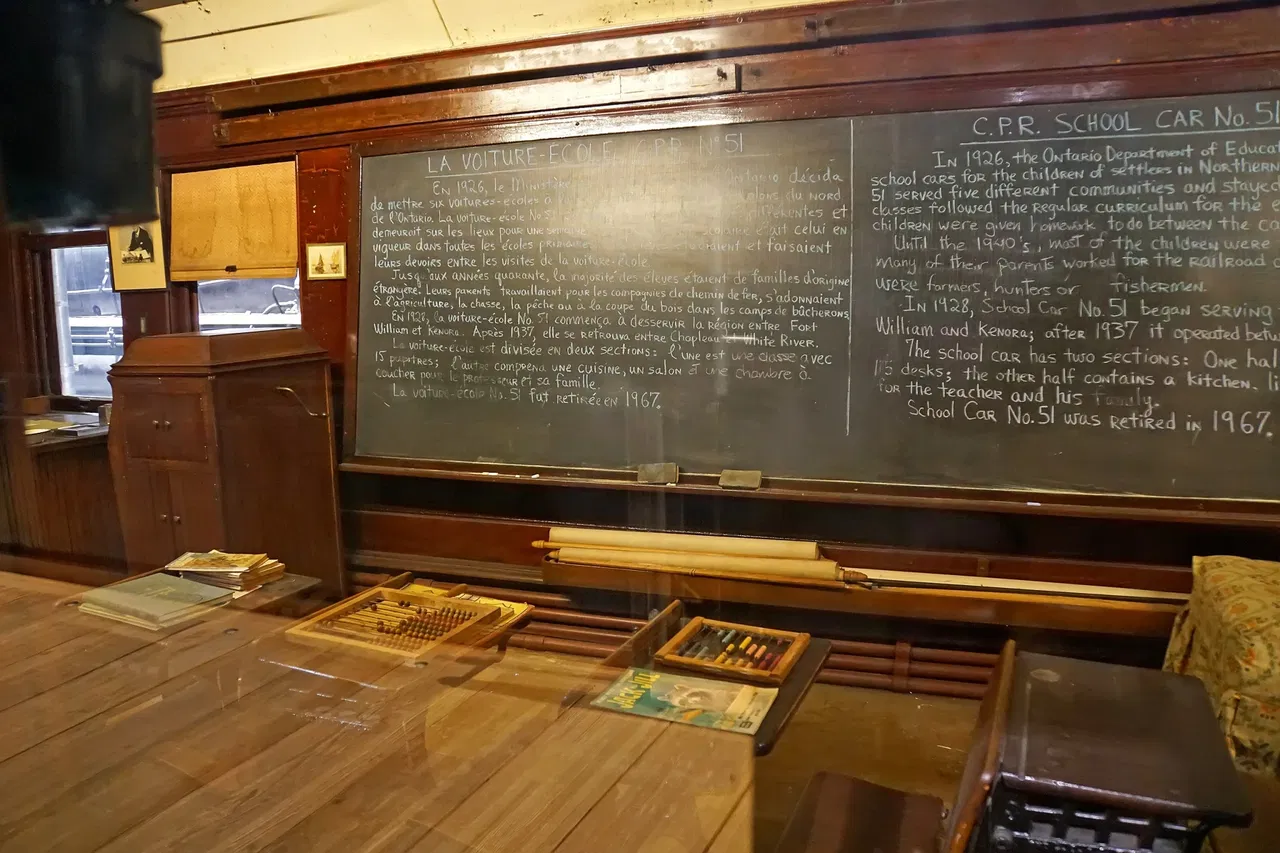 LA VOITURE-ÉCOLE C.P.R. N° 51
En 1926, le Ministère Ontario décida
de mettre six voitures-écoles à colons du nord
de l'Ontario. La voiture-école No 51 différentes et
demeurait sur les lieux pour une semaine était celui en
vigueur dans toutes les écoles primaires et faisaient
leurs devoirs entre les visites de la voiture-école.
Jusqu'aux années quarante, la majorité des élèves étaient de familles d'origine
étrangère. Leurs parents travaillaient pour les compagnies de chemin de fer, s'adonnaient
à l'agriculture, la chasse, la pêche ou à la coupe du bois dans les camps de bûcherons.
En 1928, la voiture-école No. 51 commença à desservir la région entre Fort
William et Kenora. Après 1937, elle se retrouva entre Chapleau et White River.
La voiture-école est divisée en deux sections: l'une est une classe avec
15 pupitres; l'autre comprend une cuisine, un salon et une chambre à
coucher pour le professeur et sa famille.
La voiture-école No. 51 fut retirée en 1967.
C.P.R. SCHOOL CAR No. 51
In 1926, the Ontario Department of Educat
school cars for the children of settlers in Northern
51 served five different communities and stayed
classes followed the regular curriculum for the e
children were given homework to do between the ca
Until the 1940's, most of the children were
many of their parents worked for the railroad o
were farmers, hunters or fishermen.
In 1928, School Car No. 51 began serving
William and Kenora; after 1937 it operated betw
The school car has two sections: One hal
15 desks; the other half contains a kitchen, li
for the teacher and his family.
School Car No. 51 was retired in 1967.
JACK and JILL